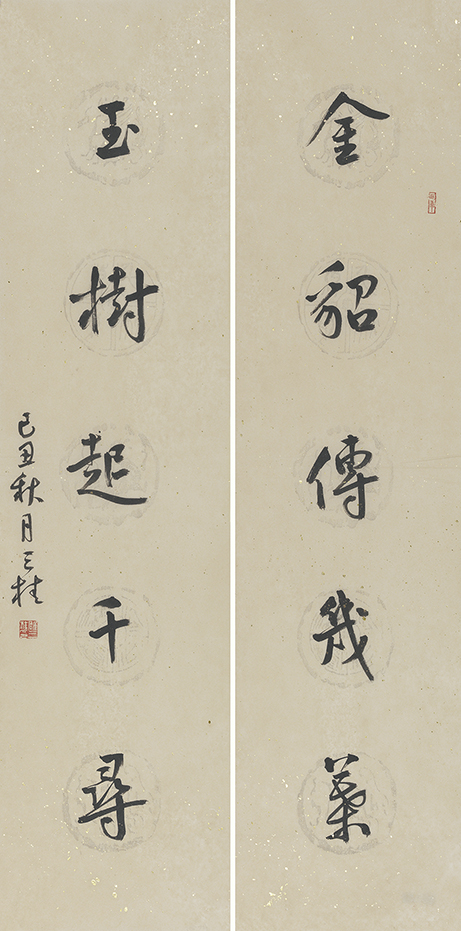 金貂傳幾葉
玉樹起千尋
己丑秋月桂